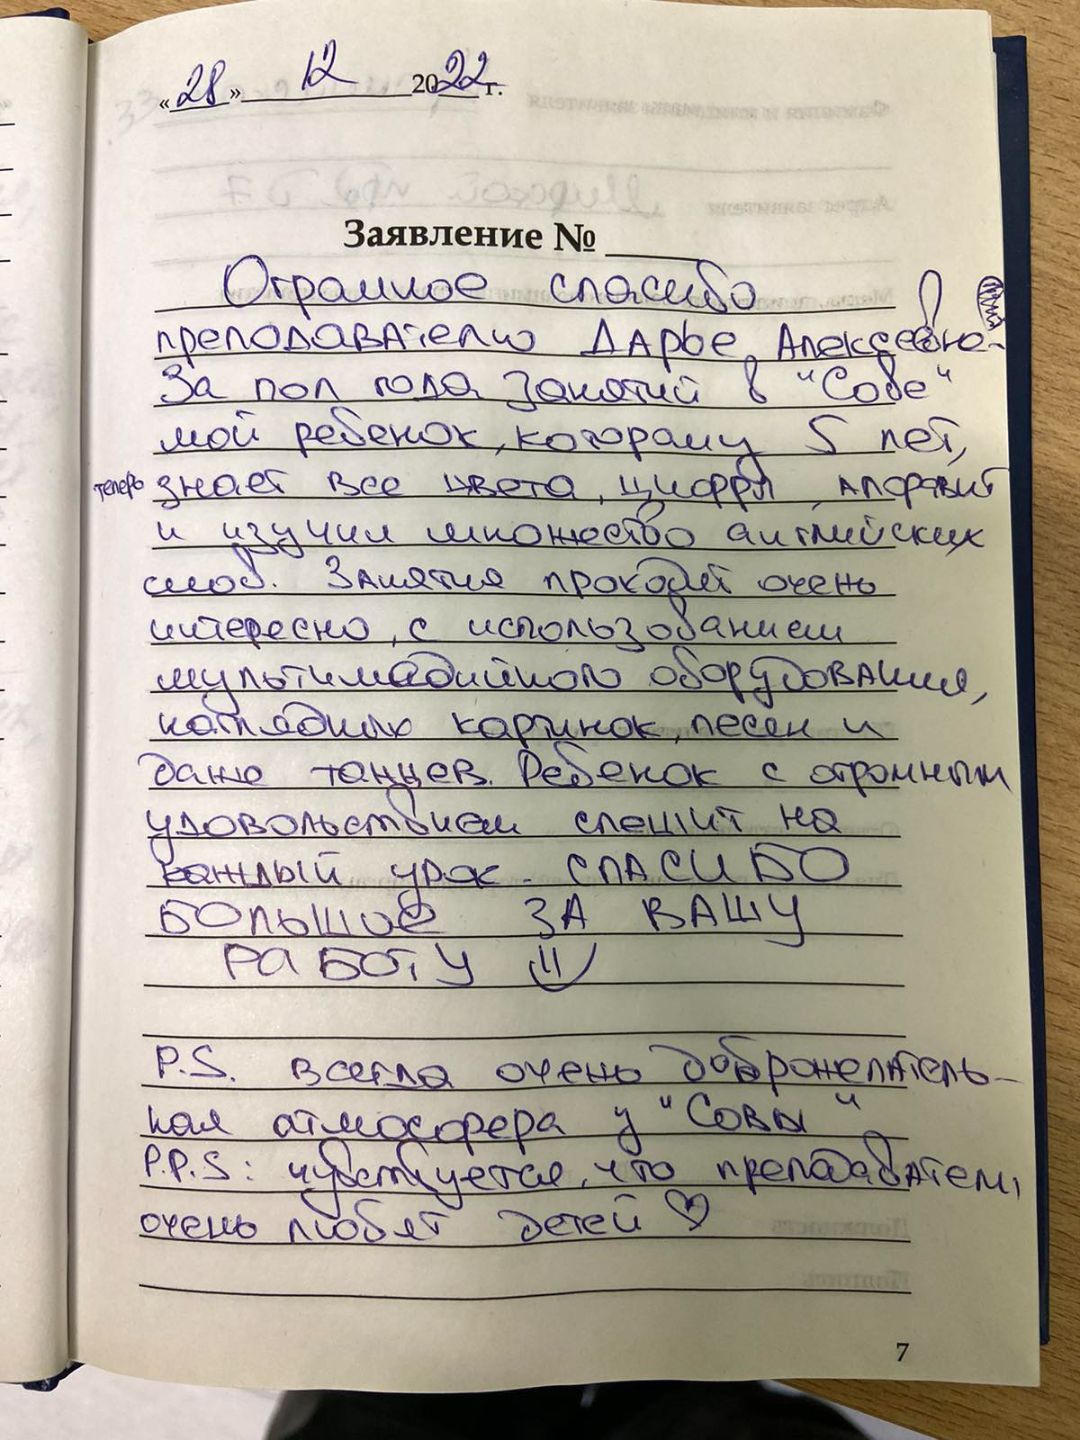 «28» 12 2022 г.
Заявление № ____
Огромное спасибо
преподавателю Дарье Алексеевне.
За пол года занятий в "Сове"
мой ребенок, которому 5 лет,
теперь знает все цвета, цифры, алфавит
и изучил множество английских
слов. Занятия проходят очень
интересно, с использованием
мультимедийного оборудования,
наглядных картинок, песен и
даже танцев. Ребенок с огромным
удовольствием спешит на
каждый урок. СПАСИБО
БОЛЬШОЕ ЗА ВАШУ
РАБОТУ
P.S. всегда очень доброжелатель-
ная атмосфера у "Совы"
P.P.S: чувствуется, что преподаватели
очень любят детей
7